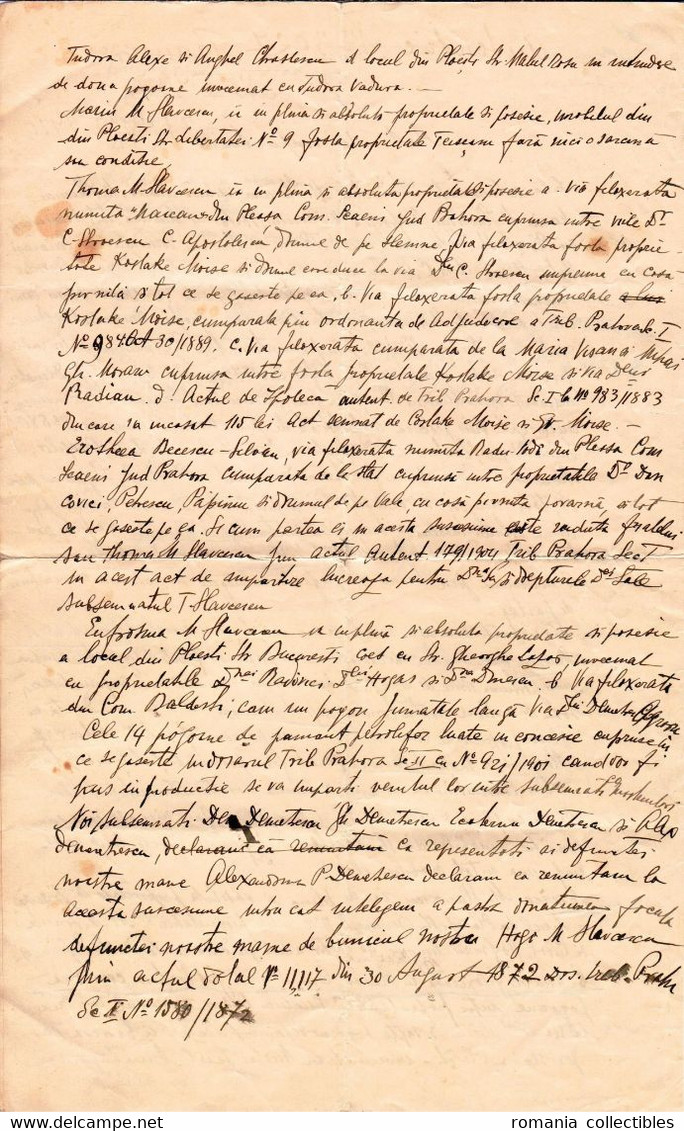 Tudora Alexe si Anghel Christescu d locul din Ploești Str. Malul Rosu in intindere
de doua pogoane invecinat cu Tudora Vaduva. —
Maria M Slavcescu, ia in plina si absoluta proprietate si posesie, imobilul din
din Ploesti Str Libertatei No 9 fosta proprietate fară nici o sarcină
sau conditie,
Thoma M. Slavcescu ia in plina si absoluta proprietate si posesie a. via filoxerata
numita din Pleasa Com. Scaeni Jud Prahova cuprinsa intre viile Dr
C. Stroescu C. Apostolescu drumul de pe Slemne, Via filoxerata fosta proprie-
tate Kostake Moise si drumul ce duce la via Dlui C. Stroescu impreuna cu casa
pivnită si tot ce se gaseste pe ea, b. Via filoxerată fosta proprietate a lui
Kostake Moise, cumparata prin ordonanta de Adjudecare a Trib. Prahova S. I
No 984 Oct 30/1889. C. Via filoxerată cumparata de la Maria Visan si Mihai
Gh. Moraru cuprinsa intre fosta proprietate Kostake Moise si via Dlui
Radian. d. Actul de Ipotecă autent. de Trib Prahova Sc I la No 983/1883
din care s'a incasat 115 lei Act semnat de Costake Moise si Gr. Moise. —
Erosteea Becescu-Silvian, via filoxerata numita Radu Vodă din Pleasa Com
Scaeni Jud Prahova cumparata de la Stat cuprinsă intre proprietatile Dlor Dan
covici, Petrescu, Păpinu si drumul de pe Vale, cu casă pivnita povarnă, si tot
ce se gaseste pe ea. Si cum partea ei in acesta succesiune este vanduta fratelui
sau Thoma M Slavcescu prin actul autent 179/1904 Trib Prahova Sec I
in acest act de impartire lucreaza pentru Dna Sa si drepturile Dei Sale
subsemnatul T. Slavcescu
Eufrosina M Slavcescu ia in plină si absoluta proprietate si posesie
a locul din Ploesti Str Bucuresti colt cu Str. Gheorghe Lazar, invecinat
cu proprietatile Dnei Radinei Dlui Hogas si Dna Dinescu. b Via filoxerata
din Com Baldesti, cam un pogon jumatate langă Via Dlui Demetrescu Agronomu
Cele 14 pógoane de pamant petrolifer luate in concesie cuprinse in
ce se gaseste in dosarul Trib Prahova Sc II cu No 921/1901 cand vor fi
puse in productie se va imparti venitul lor intre subsemnati mostenitori
Noi subsemnati Dem Demetrescu, Gh Demetrescu Ecaterina Demetrescu si Alex
Demetrescu, declaram că renuntam ca representati ai defunctei
noastre mame Alexandrina P. Demetrescu declaram ca renuntam la
aceasta succesiune intru cat intelegem a pastra donatiunea facuta
defunctei noastre mame de bunicul nostru Hagi M Slavcescu
prin actul dotal No 11,117 din 30 August 1872 Dos. Trib. Prahv
Sc II No 1580/1872
romania collectibles